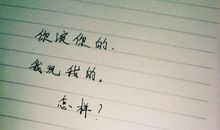 你滚你的.
我玩我的.
怎样?